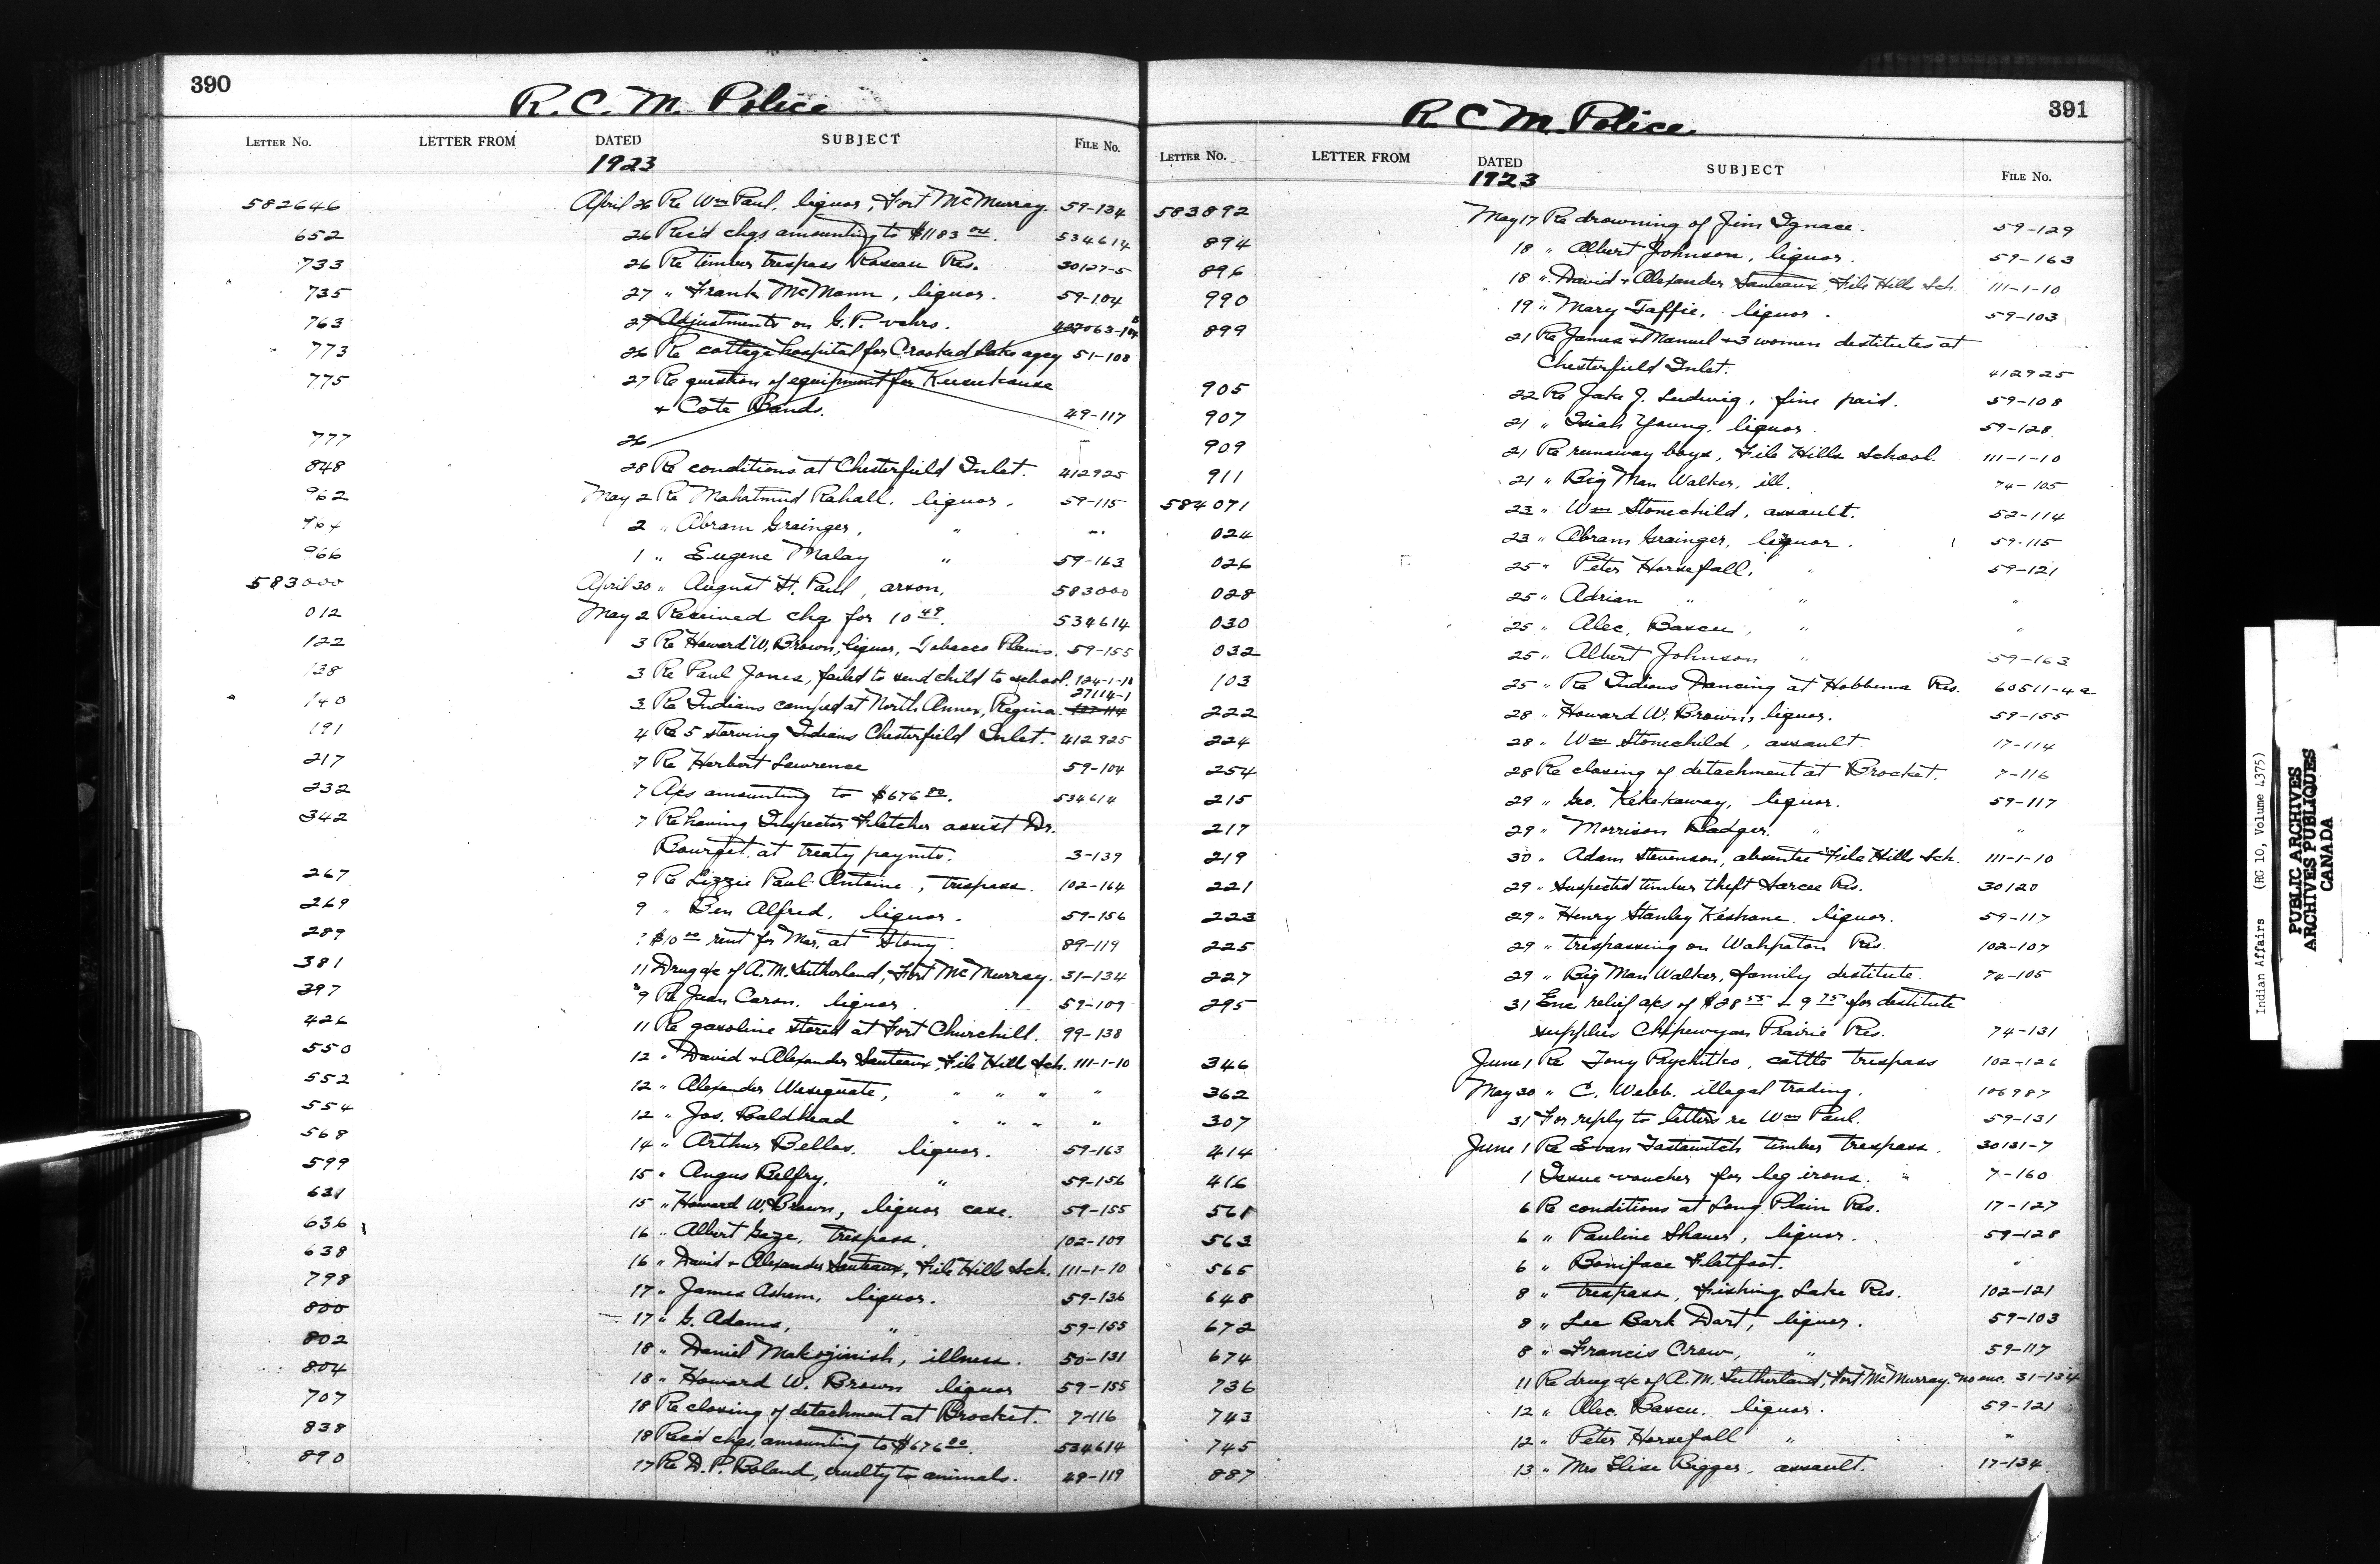 390
R. C. M. Police
LETTER NO. LETTER FROM DATED SUBJECT FILE NO.
1923
582646 April 26 Re Wm Paul, liquor, Fort McMurray. 59-134
652 26 Rec'd chqs amounting to $1183 04. 534614
733 26 Re timber trespass Roseau Res. 30127-5
735 27 " Frank McMann, liquor. 59-104
763 27 Adjustments on G.P. vchrs.
773 26 Re cottage hospital for Crooked Lake agcy 51-108
775 27 Re question of equipment for Keesekouse
& Cote Bands. 49-117
777 26
848 28 Re conditions at Chesterfield Inlet. 412925
962 May 2 Re Mahatmud Rahall, liquor, 59-115
964 2 " Abram Grainger, " "
966 1 " Eugene Malay " 59-163
583000 April 30 " August St. Paul, arson, 583000
012 May 2 Received chq for 10 49. 534614
122 3 Re Howard W. Brown, liquor, Tobacco Plains. 59-155
138 3 Re Paul Jones, failed to send child to school. 124-1-10
27114-1
140 3 Re Indians camped at North Annex, Regina.
191 4 Re 5 starving Indians Chesterfield Inlet. 412925
217 7 Re Herbert Lawrence 59-104
232 7 A/cs amounting to $676 80. 534614
342 7 Re having Inspector Fletcher assist Dr.
Bourget at treaty paymts. 3-139
267 9 Re Lizzie Paul Antoine, trespass. 102-164
269 9 " Ben Alfred, liquor. 59-156
289 ? $10 00 rent for Mar. at Stony. 89-119
381 11 Drug a/c of A.M. Sutherland, Fort McMurray. 31-134
397 9 Re Juan Caron, liquor. 59-109
426 11 Re gasoline stored at Fort Churchill. 99-138
550 12 " David & Alexander Sauteaux, File Hill Sch. 111-1-10
552 12 " Alexander Wesequate, " " " "
554 12 " Jos. Baldhead " " " "
568 14 " Arthur Bellas, liquor. 59-163
599 15 " Angus Belfry, " 59-156
631 15 " Howard W. Brown, liquor case. 59-155
636 16 " Albert Gaze, trespass, 102-109
638 16 " David & Alexander Sauteaux, File Hill Sch. 111-1-10
798 17 " James Asham, liquor. 59-136
800 17 " G. Adams, " 59-155
802 18 " Daniel Makojinish, illness. 50-131
804 18 " Howard W. Brown liquor 59-155
707 18 Re closing of detachment at Brocket. 7-116
838 18 Rec'd chqs. amounting to $676 80. 534614
890 17 Re D.P. Boland, cruelty to animals. 49-119
391
R. C. M. Police
LETTER NO. LETTER FROM DATED SUBJECT FILE NO.
1923
583892 May 17 Re drowning of Jim Ignace. 59-129
894 18 " Albert Johnson, liquor. 59-163
896 18 " David & Alexander Sauteaux, File Hill Sch. 111-1-10
990 19 " Mary Taffie, liquor. 59-103
899 21 Re James & Manuel & 3 women destitutes at
Chesterfield Inlet. 412925
905 22 Re Jake J. Ludwig, fine paid. 59-108
907 21 " Isiah Young, liquor. 59-128
909 21 Re runaway boys, File Hills School. 111-1-10
911 21 " Big Man Walker, ill. 74-105
584071 23 " Wm Stonechild, assault. 52-114
024 23 " Abram Grainger, liquor. 59-115
026 25 " Peter Horsefall, " 59-121
028 25 " Adrian " " "
030 25 " Alec. Baxcu, " "
032 25 " Albert Johnson " 59-163
103 25 " Re Indians Dancing at Hobbema Res. 60511-4a
222 28 " Howard W. Brown, liquor. 59-155
224 28 " Wm Stonechild, assault. 17-114
254 28 Re closing of detachment at Brocket. 7-116
215 29 " Geo. Kekekaway, liquor. 59-117
217 29 " Morrison Badger. " "
219 30 " Adam Stevenson, absentee File Hill Sch. 111-1-10
221 29 " Suspected timber theft Sarcee Res. 30120
223 29 " Henry Stanley Keshane liquor. 59-117
225 29 " trespassing on Wahpaton Res. 102-107
227 29 " Big Man Walker, family destitute. 74-105
295 31 Enc relief a/cs of $28 55 & 9 75 for destitute
supplies Chipewyan Prairie Res. 74-131
346 June 1 Re Tony Prychitko, cattle trespass 102-126
362 May 30 " C. Webb, illegal trading, 106987
307 31 For reply to letters re Wm Paul. 59-131
414 June 1 Re Evan Tastawitch timber trespass. 30131-7
416 1 Issue voucher for leg irons. 7-160
561 6 Re conditions at Long Plain Res. 17-127
563 6 " Pauline Shaner, liquor. 59-128
565 6 " Boniface Flatfoot. "
648 8 " trespass, Fishing Lake Res. 102-121
672 8 " Lee Bark Dart, liquor. 59-103
674 8 " Francis Crow, " 59-117
736 11 Re drug a/c of A.M. Sutherland, Fort McMurray. no enc. 31-134
743 12 " Alec. Baxcu. liquor. 59-121
745 12 " Peter Horsefall " "
887 13 " Mrs Elise Bigger, assault. 17-134
Indian Affairs (RG 10, Volume 4375)
PUBLIC ARCHIVES
ARCHIVES PUBLIQUES
CANADA